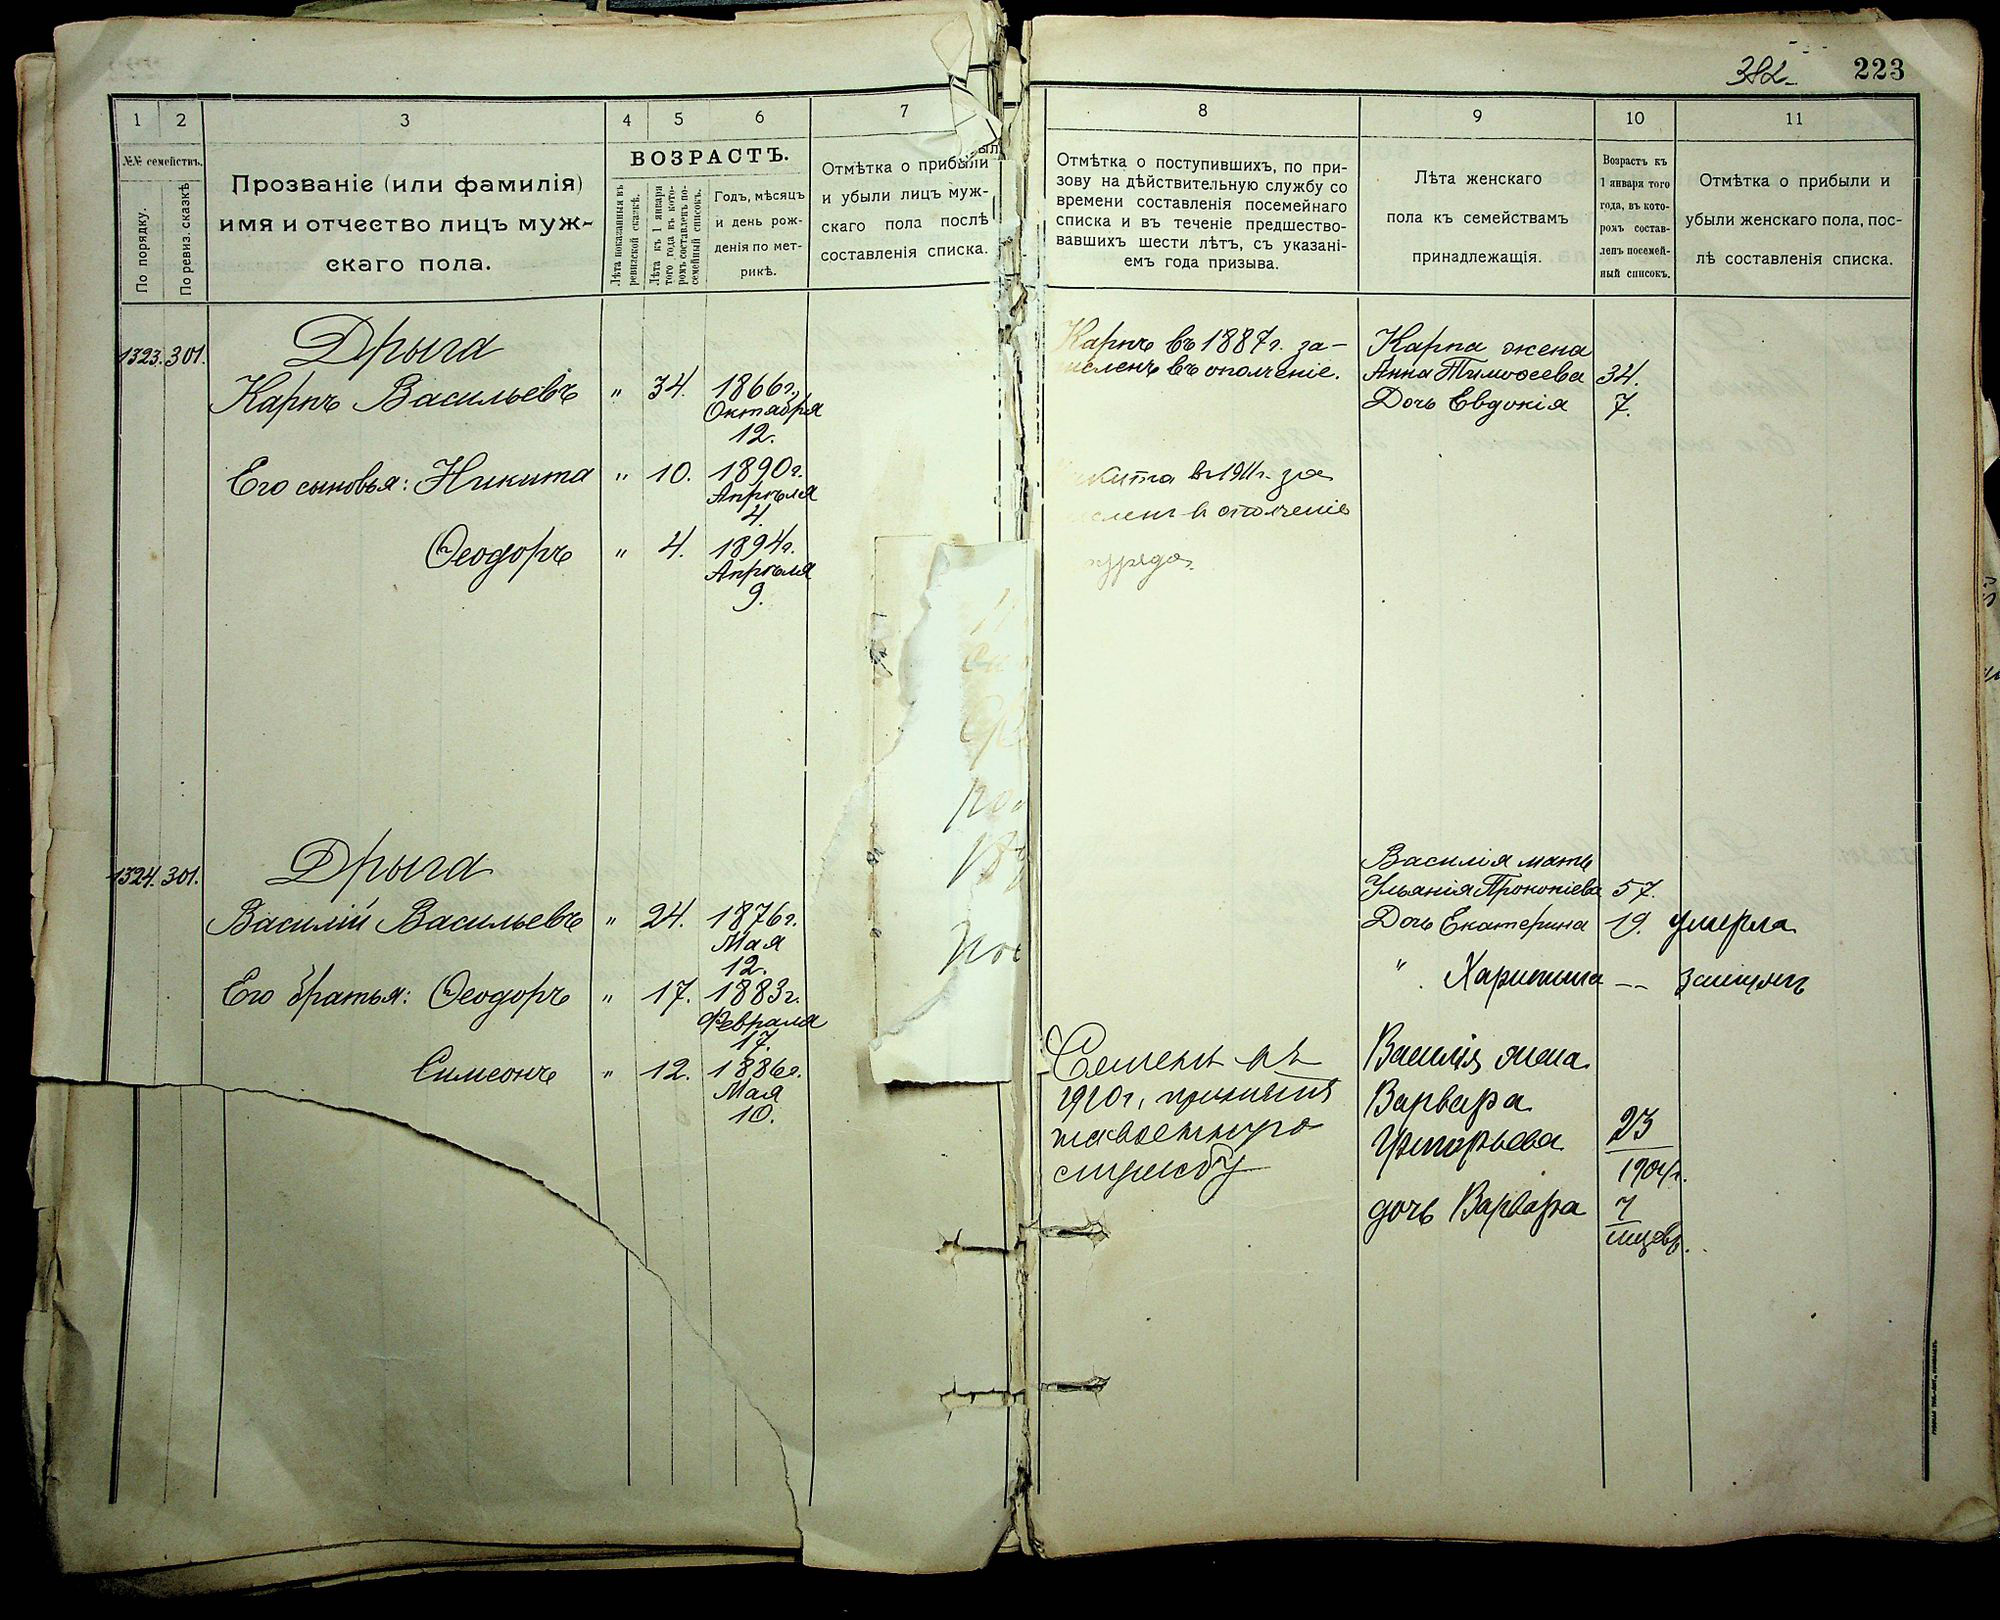 382
223
1 2 3 4 5 6 7
№№ семействъ.
По порядку.
По ревиз. сказкѣ
Прозваніе (или фамилія)
имя и отчество лицъ муж-
скаго пола.
ВОЗРАСТЪ.
Лѣта показанныя въ
ревизской сказкѣ.
Лѣта къ 1 января
того года въ кото-
ромъ составленъ по-
семейный списокъ.
Годъ, мѣсяцъ
и день рож-
денія по мет-
рикѣ.
Отмѣтка о прибыли
и убыли лицъ муж-
скаго пола послѣ
составленія списка.
1323. 301. Дрыга
Карпъ Васильевъ " 34. 1866г.
Октября
12.
Его сыновья: Никита " 10. 1890г.
Апрѣля
4.
Ѳеодоръ " 4. 1894г.
Апрѣля
9.
1324. 301. Дрыга
Василій Васильевъ " 24. 1876г.
Мая
12.
Его братья: Ѳеодоръ " 17. 1883г.
Февраля
17.
Симеонъ " 12. 1886г.
Мая
10.
8 9 10 11
Отмѣтка о поступившихъ, по при-
зову на дѣйствительную службу со
времени составленія посемейнаго
списка и въ теченіе предшество-
вавшихъ шести лѣтъ, съ указані-
емъ года призыва.
Лѣта женскаго
пола къ семействамъ
принадлежащія.
Возрастъ къ
1 января того
года, въ кото-
ромъ состав-
ленъ посемей-
ный списокъ.
Отмѣтка о прибыли и
убыли женскаго пола, пос-
лѣ составленія списка.
Карпъ въ 1887г. за-
численъ въ ополченіе.
Карпа жена
Анна Тимоѳеева 34.
Дочь Евдокія 7.
Никита в 1911г. за
числен в ополченіе
Василія мать
Ульянія Прокопіева 57.
Дочь Екатерина 19. умерла
" Харитина -- замужъ
Семенъ въ
1910г. принятъ
на военную
службу
Василія жена
Варвара
Григорьева 23
1904г.
дочь Варвара 7
мѣсяц.